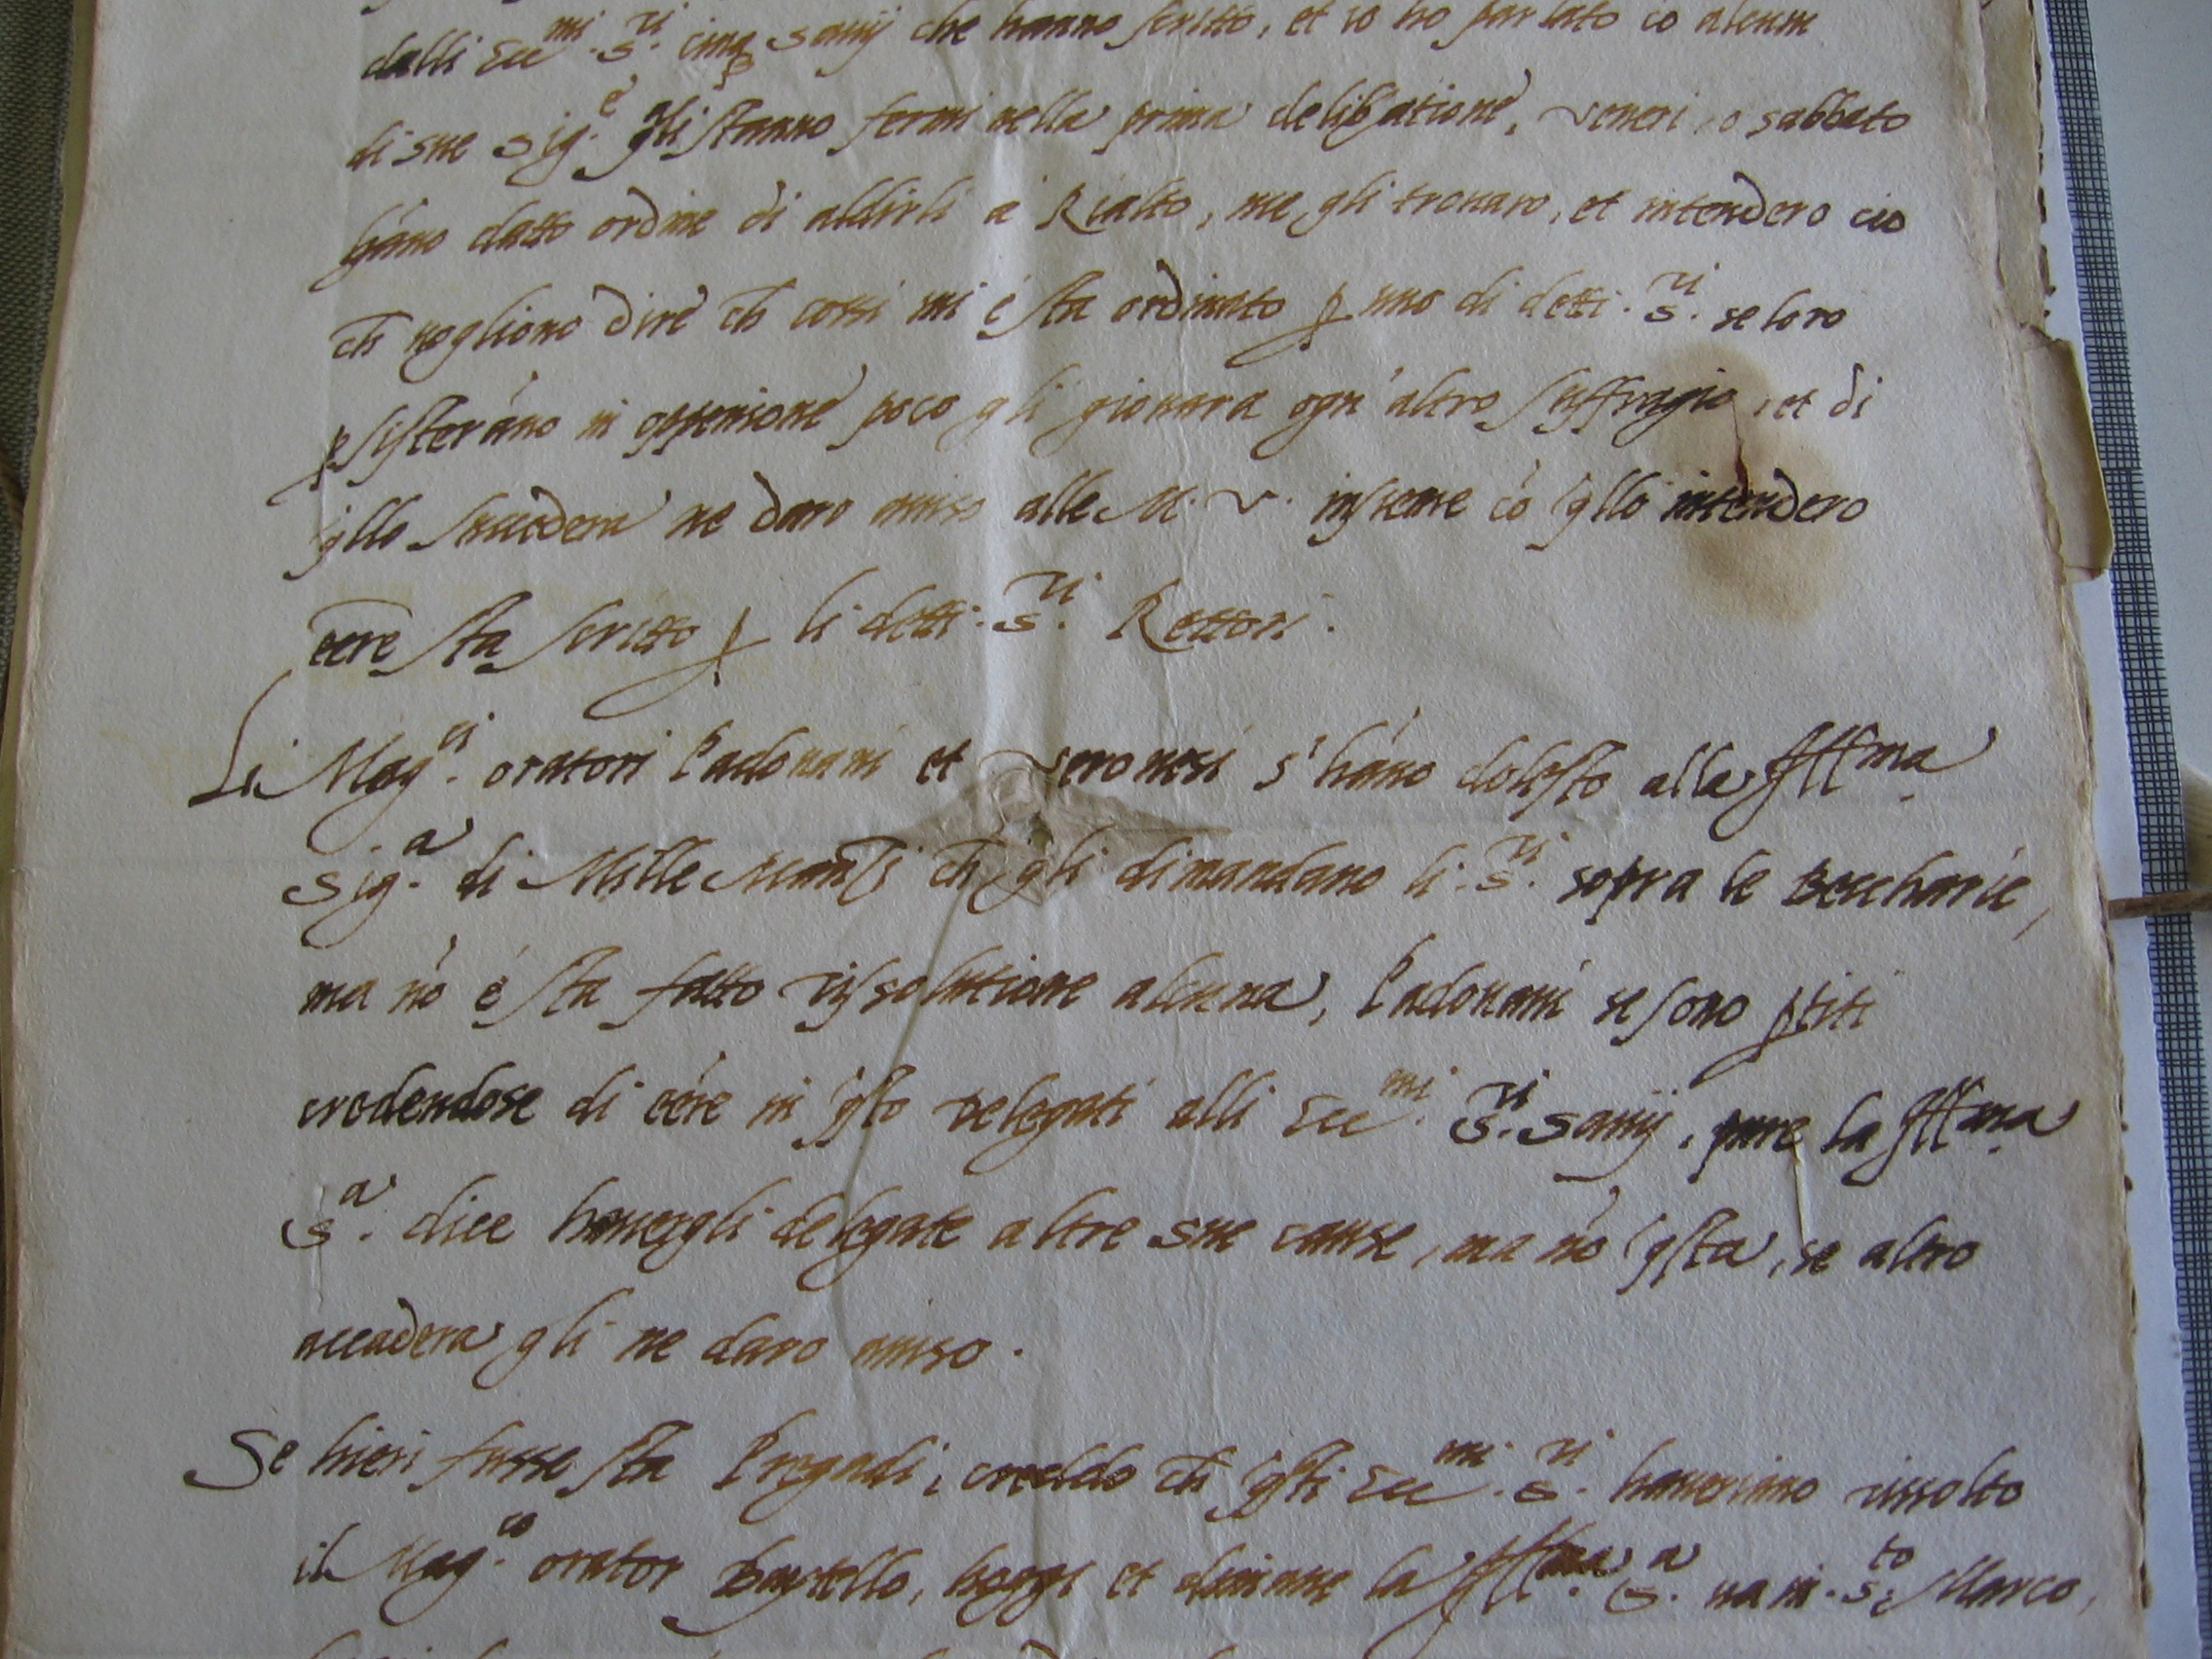 dalli Ecc.mi S.ri cinq Savij che hanno scritto, et io ho parlato cō alcuni
di sue Sig.e gli stanno fermi nella prima delibatione, veneri o sabbato
hāno datto ordine di aldirli a Rialto, me gli trovaro, et intendero cio
ch vogliono dire ch cossi mi è sta ordinato p uno di detti S.ri se loro
psisterāno in oppenione poco gli giovara ogn'altro suffragio, et di
qllo succedera ne daro aviso alle M. V. insieme cō qllo intendero
eere sta scritto p li detti S.ri Rettori.
Li Mag.ci oratori Padovani et Veronesi s'hāno dolesto alla Ill.ma
Sig.a di Mille ch gli dimandano li S.ri sopra le Beccharie,
ma nō è sta fatto rissolutione alcuna, Padovani se sono ptiti
credendose di eēre in qsto delegati alli Ecc.mi S.ri Savij, pure la Ill.ma
S.a dice havergli delegate altre sue cause, ma nō qsta, se altro
accadera gli ne daro aviso.
Se hieri fusse sta Pregadi, credo ch qsti Ecc.mi S.ri haveriano rissolto
il Mag.co orator hoggi et dimane la Ill.ma S.a va in S.to Marco,